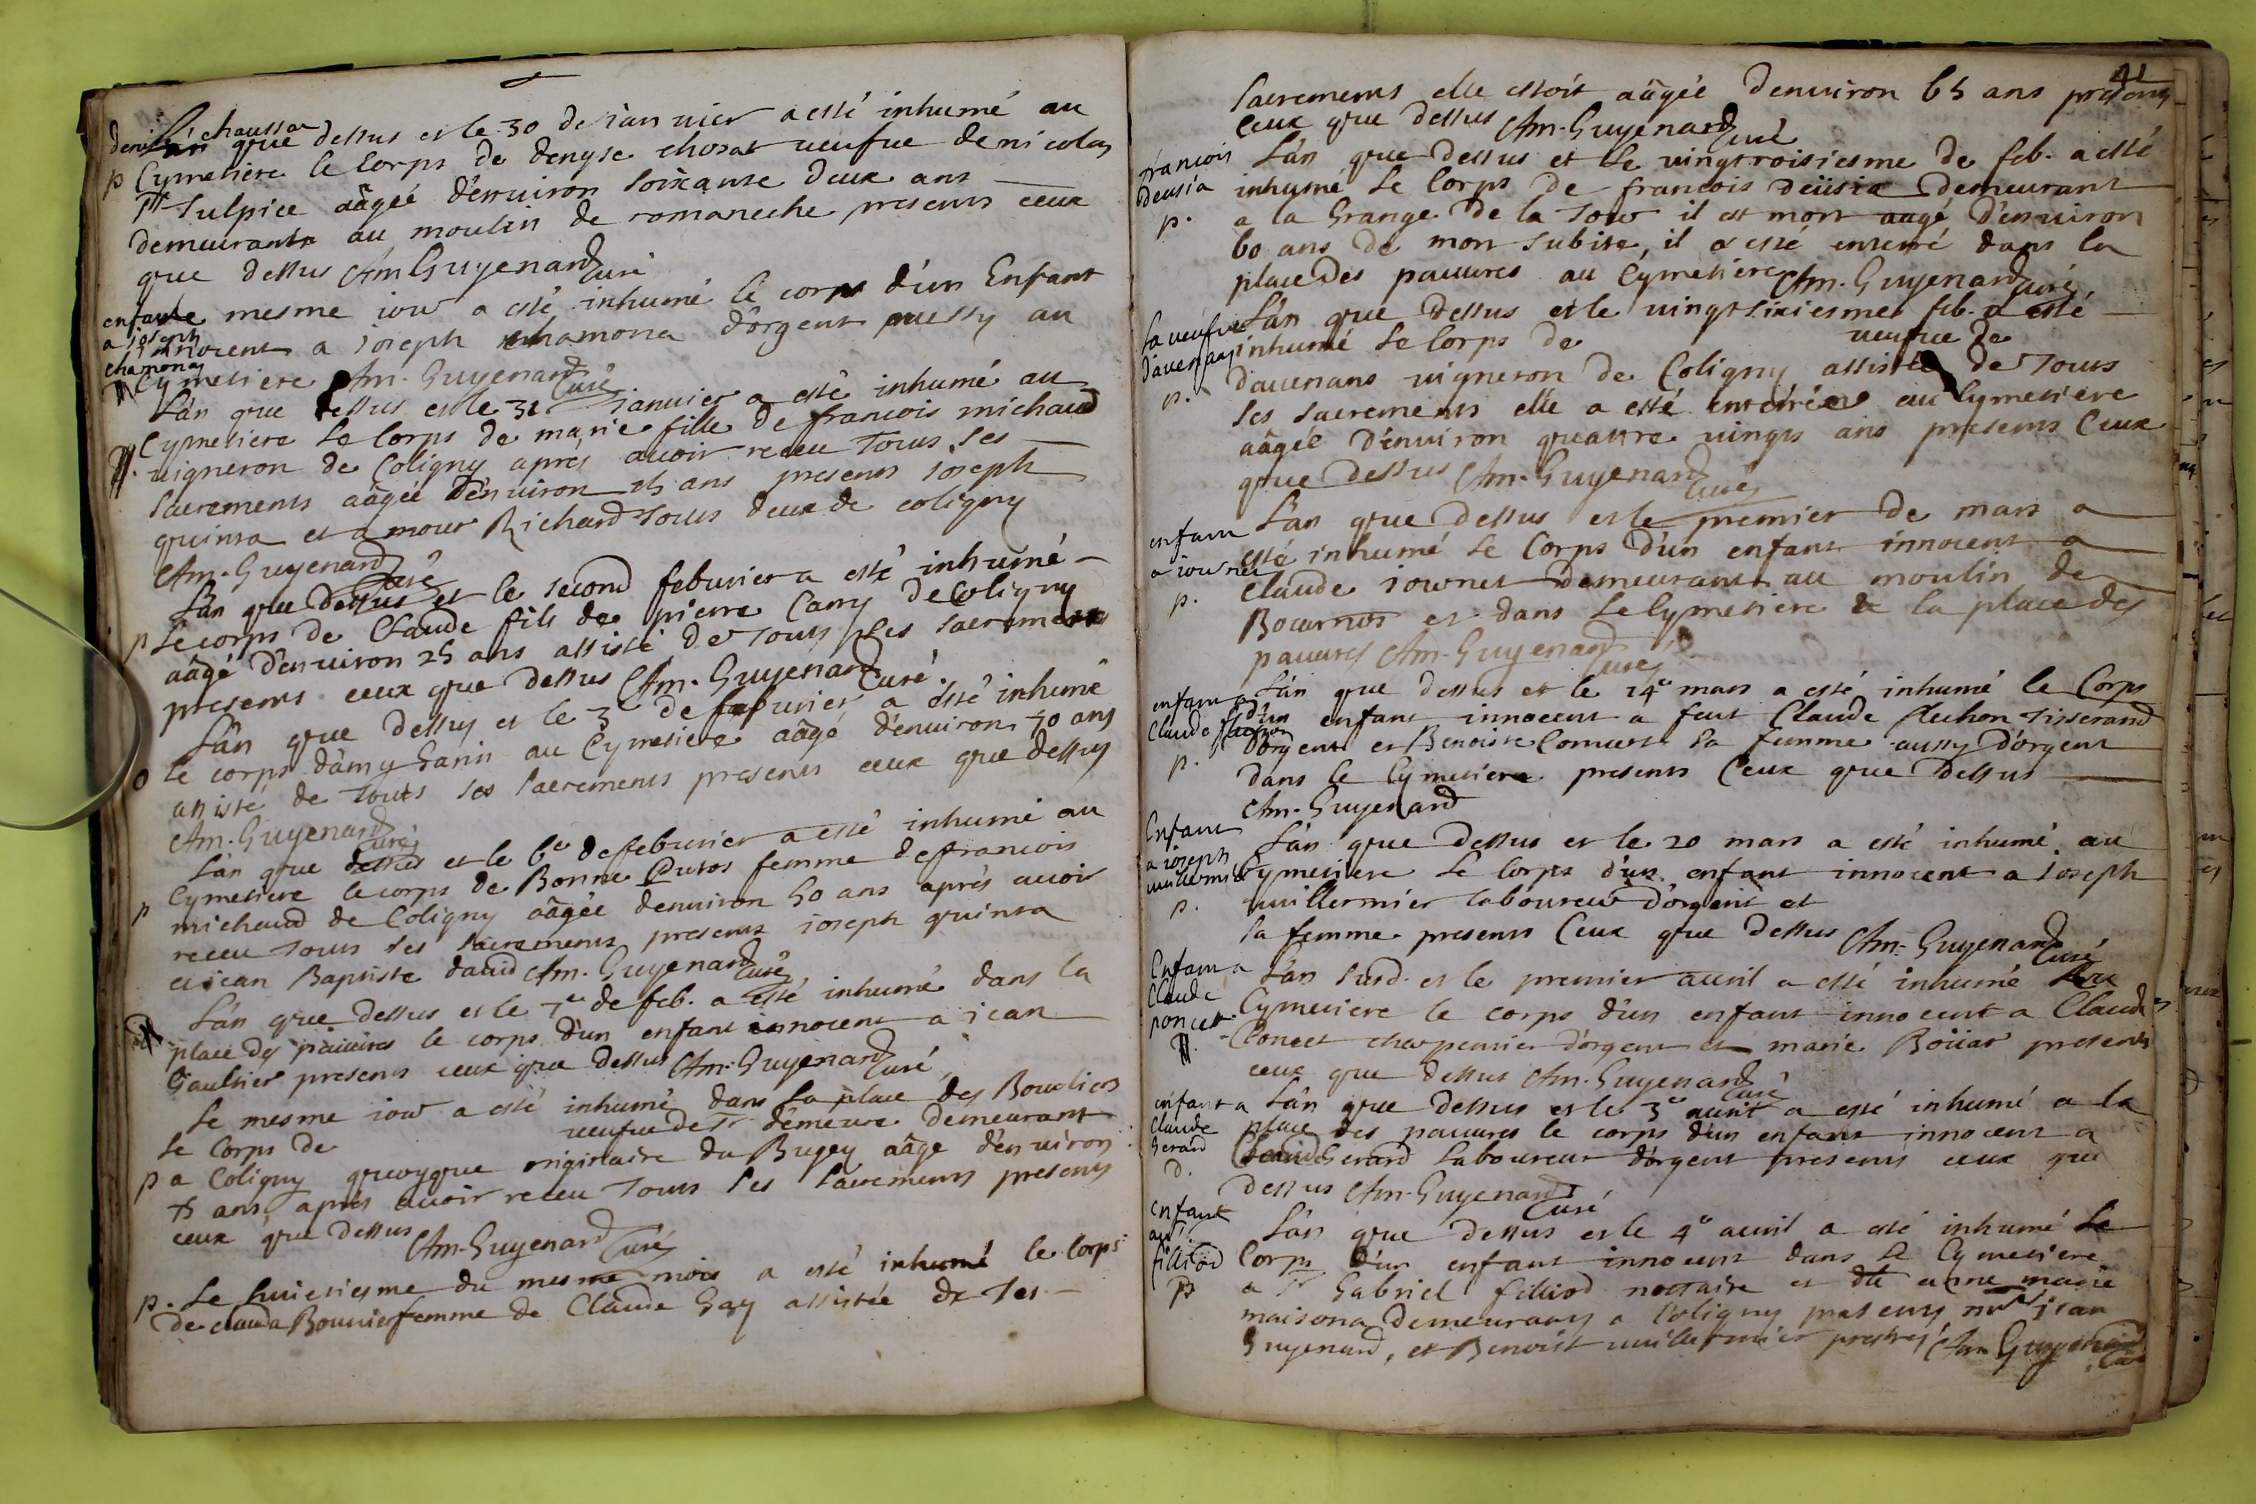 L'an que dessus et le 30 de ianuier a esté inhumé au
p Cymetiere le Corps de denyse chosat ueufue de nicolas
St Sulpice aâgéé d'enuiron soixante deux ans
demeurante au moulin de romaneche presents ceux
que dessus Am. Guyenard Curé
enfant
a ioseph
chamona
le mesme iour a esté inhumé le corps d'un Enfant
innocent a ioseph chamona d'orgent aussy au
Cymetiere Am. Guyenard Curé
L'an que dessus et le 31 ianuier a esté inhumé au
Cymetiere le Corps de marie fille de francois michaud
uigneron de Coligny apres auoir receu Tous ses
sacrements aâgéé d'enuiron 25 ans presents ioseph
quinsa et amour Richard Tous deux de coligny
Am. Guyenard Curé
L'an que dessus et le second feburier a esté inhumé
p le corps de Claude fils de pierre Carry de Coligny
aâgé d'enuiron 25 ans assisté de Tous ses sacrements
presents ceux que dessus Am. Guyenard Curé.
L'an que dessus et le 3e de feburier a esté inhumé
le corps d'amyGanin au Cymetiere aâgé d'enuiron 50 ans
assisté de Touts ses sacrements presents ceux que dessus
Am. Guyenard Curé
L'an que dessus et le 6e de feburier a esté inhumé au
Cymetiere le corps de Bonne femme de francois
p michaud de Coligny aâgée denuiron 50 ans aprés auoir
receu Tous ses sacrements presents ioseph quinsa
et iean Baptiste dauid Am. Guyenard Curé
L'an que dessus et le 7e de feb. a esté inhumé dans la
place des pauures le corps d'un enfant innocent a iean
Gaultier presents ceux que dessus Am. Guyenard Curé
Le mesme iour a esté inhumé dans la place des Boucliers
le Corps de ueufue de Sr demeure demeurant
p a Coligny quoyque originaire du Bugey aâge d'enuiron
75 ans aprés auoir receu Tous ses sacrements presents
ceux que dessus Am. Guyenard Curé
p. Le huietiesme du mesme mois a esté inhumé le Corps
de clauda Bouuier femme de Claude Gay assistée de ses
41
sacrements elle estoit aâgéé denuiron 65 ans presents
ceux que dessus Am. Guyenard Curé
francois
deusia
p.
L'an que dessus et le uingtroisiesme de feb. a esté
inhumé le Corps de francois deüsia demeurant
a la Grange de la Tour il est mort aagé d'enuiron
60 ans de mort subite, il a esté enterré dans la
place des pauures au Cymetiere Am. Guyenard Curé
la ueufue
dauenans
p.
L'an que dessus et le uingt sixiesme feb. a esté
inhumé le Corps de ueufue de
dauenans uigneron de Coligny assistée de Tous
ses sacrements elle a esté enterrée au Cymetiere
aâgéé d'enuiron quattre uingts ans presents Ceux
que dessus Am. Guyenard Curé
enfant
a iournet
p.
L'an que dessus et le premier de mars a
esté inhumé le Corps d'un enfant innocent a
Claude iournet demeurant au moulin de
et dans le Cymetiere a la place des
pauures Am. Guyenard Curé
enfant a
Claude
p.
L'an que dessus et le 14e mars a esté inhumé le Corps
d'un enfant innocent a feut Claude fluchon Tisserand
d'orgent et Benoiste sa femme aussy d'orgent
dans le Cymetiere presents Ceux que dessus
Am. Guyenard
Enfant
a ioseph
uuillermier
p.
L'an que dessus et le 20 mars a esté inhumé au
Cymetiere le Corps d'un enfant innocent a ioseph
uuillermier laboureur d'orgent et
sa femme presents Ceux que dessus Am. Guyenard Curé
Enfant a
Claude
poncet.
L'an susd. et le premier auril a esté inhumé au
Cymetiere le corps d'un enfant innocent a Claude
Poncet charpentier d'orgent et marie Boüiat presents
ceux que dessus Am. Guyenard Curé
enfant a
Claude
Gerard
p.
L'an que dessus et le 3e auril a esté inhumé a la
place des pauures le corps d'un enfant innocent a
Claude Gerard laboureur d'orgent presents ceux que
dessus Am. Guyenard Curé
enfant
au Sr.
filliod
p
L'an que dessus et le 4e auril a esté inhumé le
Corps d'un enfant innocent dans le Cymetiere
a Sr Gabriel filliod nottaire et dlle anne marie
maisona demeurans a Coligny presents iean
Guyenard, et Benoist uuillermier prestres Am Guyenard Curé